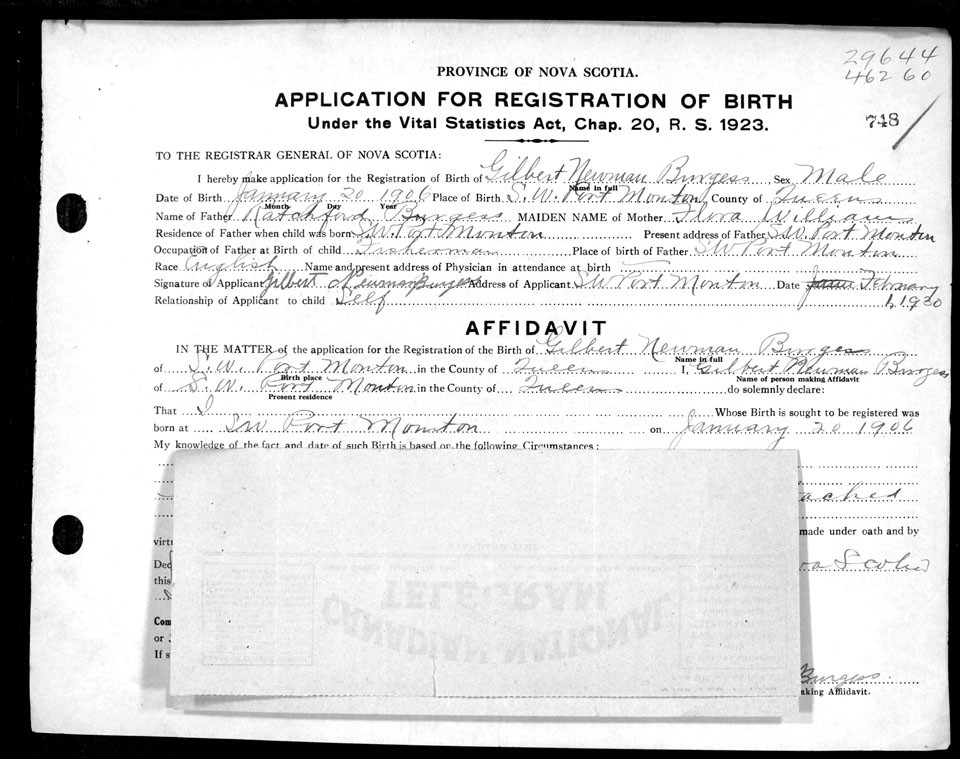 29644
46260
PROVINCE OF NOVA SCOTIA.
APPLICATION FOR REGISTRATION OF BIRTH
Under the Vital Statistics Act, Chap. 20, R. S. 1923.
748
TO THE REGISTRAR GENERAL OF NOVA SCOTIA:
I hereby make application for the Registration of Birth of Gilbert Newman Burgess, Sex Male
Name in full
Date of Birth January 20 1906 Place of Birth S. W. Port Monton, County of Queens
Month Day Year
Name of Father Ratchford Burgess MAIDEN NAME of Mother Flora Williams
Residence of Father when child was born S. W. Port Monton Present address of Father S. W. Port Monton
Occupation of Father at Birth of child Fisherman Place of birth of Father S W Port Monton
Race English Name and present address of Physician in attendance at birth
Signature of Applicant Gilbert Newman Burgess Address of Applicant S W Port Monton Date February
Relationship of Applicant to child Self 1, 1930
AFFIDAVIT
IN THE MATTER of the application for the Registration of the Birth of Gilbert Newman Burgess
Name in full
of S. W. Port Monton in the County of Queens I, Gilbert Newman Burgess
Birth place Name of person making Affidavit
of S. W. Port Monton in the County of Queens do solemnly declare:
Present residence
That I Whose Birth is sought to be registered was
born at S W Port Mounton on January 20 1906
My knowledge of the fact and date of such Birth is based on the following Circumstances:
ached
made under oath and by
virtu
Dec
this
Com
or
If s
STANDARD TIME
TELEGRAM
CANADIAN NATIONAL
Burgess
aking Affidavit.